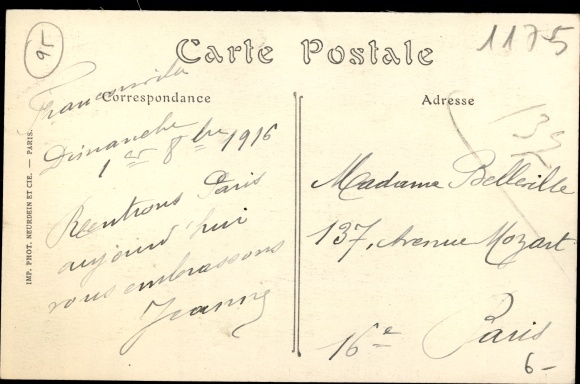 95
Carte Postale
1175
Correspondance
Adresse
Franconville
Dimanche
1er 8bre 1916
Rentrons Paris
aujourd'hui
vous embrassons
Jeanne
Madame Belleville
137, Avenue Mozart
16e Paris
6-
IMP. PHOT. NEURDEIN ET CIE. — PARIS.